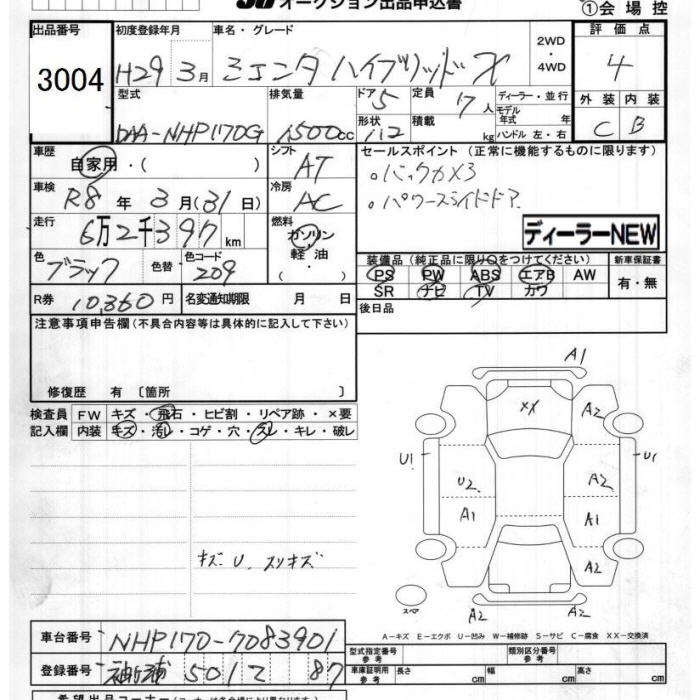 オークション出品申込書
①会場控
出品番号 初度登録年月 車名・グレード 2WD・4WD 評価点
3004 H29 3月 シエンタ ハイブリッド X 4
型式 排気量 ドア 5 定員 7人 ディーラー・並行 外装 内装
DAA-NHP170G 1500cc 形状 積載 kg モデル年式 年式 ハンドル 左・右 C B
車歴 自家用・( ) シフト AT セールスポイント (正常に機能するものに限ります)
車検 R8 年 3 月(31日) 冷房 AC 。バックカメラ
。パワースライドドア
走行 6万2千397 km 燃料 ガソリン・軽油・ ディーラーNEW
色 ブラック 色替 色コード 209 装備品(純正品に限り○をつけてください) 新車保証書
PS PW ABS エアB AW 有・無
SR ナビ TV カワ
R券 10,360円 名変通知期限 月 日 後日品
注意事項申告欄(不具合内容等は具体的に記入して下さい)
修復歴 有 [箇所 ]
検査員 FW キズ・飛石・ヒビ割・リペア跡・×要
記入欄 内装 キズ・汚レ・コゲ・穴・スレ・キレ・破レ
A1
XX A2
U1 U2 A2 U1
A1 A1
A2
キズ U. スリキズ
スペア A2 A2
A−キズ E−エクボ U−凹み W−補修跡 S−サビ C−腐食 XX−交換済
車台番号 NHP170-7083901 型式指定番号 参考 類別区分番号 参考
登録番号 袖ヶ浦 501 87 車庫証明用 参考 長さ cm 幅 cm 高さ cm
希望出品コーナー